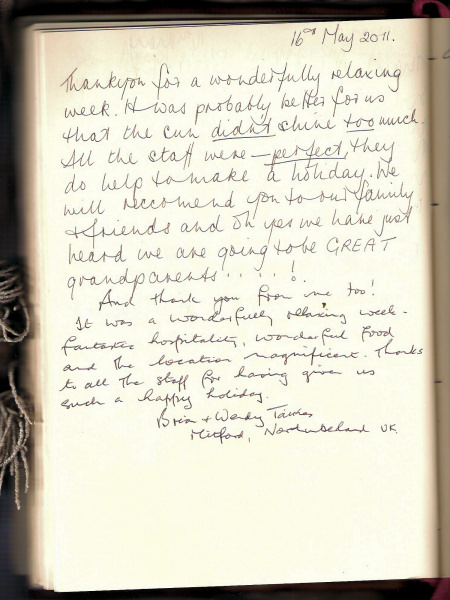 16th May 2011.
Thankyou for a wonderfully relaxing
week. It was probably better for us
that the sun didn't shine too much.
All the staff were — perfect, they
do help to make a holiday. We
will reccomend you to our family
& friends and oh yes we have just
heard we are going to be GREAT
grandparents . . . . . !
And thank you from me too!
It was a wonderfully relaxing week -
fantastic hospitality, wonderful food
and the location magnificent. Thanks
to all the staff for having given us
such a happy holiday.
Brian & Wendy
Mitford, Northumberland UK.